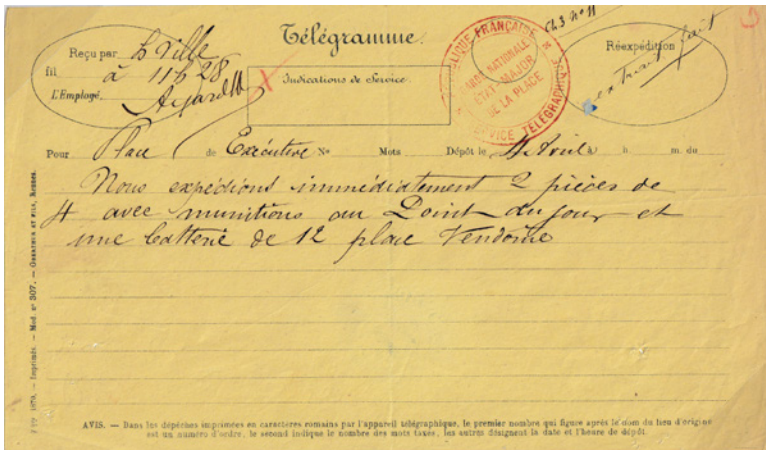 Télégramme.
Ch. 3 No 11
Reçu par h. Ville
fil à 11 h 28
l'Employé
Indications de service.
RÉPUBLIQUE FRANÇAISE
GARDE NATIONALE
ETAT-MAJOR
DE LA PLACE
SERVICE TÉLÉGRAPHIQUE
Réexpédition
extrait fait
Pour Place de Exécutive No Mots Dépôt le 4 Avril à h. m. du
Nous expédions immédiatement 2 pièces de
4 avec munitions au Point du jour et
une batterie de 12 place Vendôme
1870. — Imprimés. — Mod. nº 307. — OBERTHUR ET FILS, Rennes.
AVIS. — Dans les dépêches imprimées en caractères romains par l'appareil télégraphique, le premier nombre qui figure après le nom du lieu d'origine
est un numéro d'ordre, le second indique le nombre des mots taxés, les autres désignent la date et l'heure de dépôt.